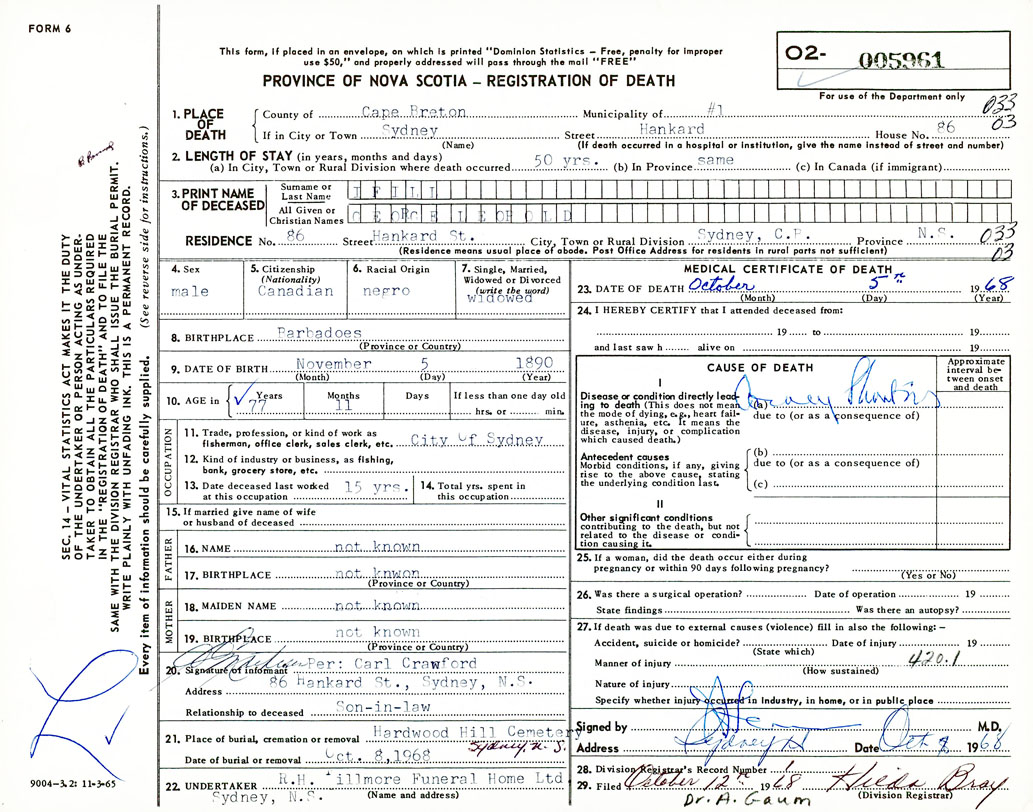 FORM 6
This form, if placed in an envelope, on which is printed "Dominion Statistics – Free, penalty for improper
use $50," and properly addressed will pass through the mail "FREE"
PROVINCE OF NOVA SCOTIA – REGISTRATION OF DEATH
O2- 005961
For use of the Department only
033
03
1. PLACE OF DEATH
County of Cape Breton Municipality of #1
If in City or Town Sydney Street Hankard House No. 86
(Name) (If death occurred in a hospital or institution, give the name instead of street and number)
2. LENGTH OF STAY (in years, months and days)
(a) In City, Town or Rural Division where death occurred 50 yrs. (b) In Province same (c) In Canada (if immigrant)
3. PRINT NAME OF DECEASED
Surname or Last Name IFILL
All Given or Christian Names GEORGE LEOPOLD
RESIDENCE No. 86 Street Hankard St. City, Town or Rural Division Sydney, C.B. Province N.S.
(Residence means usual place of abode. Post Office Address for residents in rural parts not sufficient)
033
03
4. Sex
male
5. Citizenship
(Nationality)
Canadian
6. Racial Origin
negro
7. Single, Married,
Widowed or Divorced
(write the word)
widowed
8. BIRTHPLACE Barbadoes
(Province or Country)
9. DATE OF BIRTH November 5 1890
(Month) (Day) (Year)
10. AGE in Years Months Days If less than one day old
77 11 hrs. or min.
OCCUPATION
11. Trade, profession, or kind of work as
fisherman, office clerk, sales clerk, etc. City Of Sydney
12. Kind of industry or business, as fishing,
bank, grocery store, etc.
13. Date deceased last worked
at this occupation 15 yrs.
14. Total yrs. spent in
this occupation
15. If married give name of wife
or husband of deceased
FATHER
16. NAME not known
17. BIRTHPLACE not knwon
(Province or Country)
MOTHER
18. MAIDEN NAME not known
19. BIRTHPLACE not known
(Province or Country)
20. Signature of informant Per: Carl Crawford
Address 86 Hankard St., Sydney, N.S.
Relationship to deceased Son-in-law
21. Place of burial, cremation or removal Hardwood Hill Cemetery
Sydney N.S.
Date of burial or removal Oct. 8,1968
22. UNDERTAKER R.H. Fillmore Funeral Home Ltd
Sydney, N.S. (Name and address)
MEDICAL CERTIFICATE OF DEATH
23. DATE OF DEATH October 5th 1968
(Month) (Day) (Year)
24. I HEREBY CERTIFY that I attended deceased from:
19 to 19
and last saw h alive on 19
CAUSE OF DEATH
Approximate
interval be-
tween onset
and death
I
Disease or condition directly lead-
ing to death (This does not mean
the mode of dying, e.g., heart fail-
ure, asthenia, etc. It means the
disease, injury, or complication
which caused death.)
(a)
due to (or as a consequence of)
Antecedent causes
Morbid conditions, if any, giving
rise to the above cause, stating
the underlying condition last.
(b)
due to (or as a consequence of)
(c)
II
Other significant conditions
contributing to the death, but not
related to the disease or condi-
tion causing it.
25. If a woman, did the death occur either during
pregnancy or within 90 days following pregnancy?
(Yes or No)
26. Was there a surgical operation? Date of operation 19
State findings Was there an autopsy?
27. If death was due to external causes (violence) fill in also the following: –
Accident, suicide or homicide? Date of injury 19
(State which)
Manner of injury 420.1
(How sustained)
Nature of injury
Specify whether injury occurred in Industry, in home, or in public place
Signed by M.D.
Address Sydney Date Oct 1968
28. Division Registrar's Record Number
29. Filed October 12th 1968 Hilda Bray
(Division Registrar)
Dr. A. Gaum
SEC. 14 – VITAL STATISTICS ACT MAKES IT THE DUTY
OF THE UNDERTAKER OR PERSON ACTING AS UNDER-
TAKER TO OBTAIN ALL THE PARTICULARS REQUIRED
IN THE "REGISTRATION OF DEATH" AND TO FILE THE
SAME WITH THE DIVISION REGISTRAR WHO SHALL ISSUE THE BURIAL PERMIT.
WRITE PLAINLY WITH UNFADING INK. THIS IS A PERMANENT RECORD.
Every item of information should be carefully supplied. (See reverse side for instructions.)
9004-3.2: 11-3-65